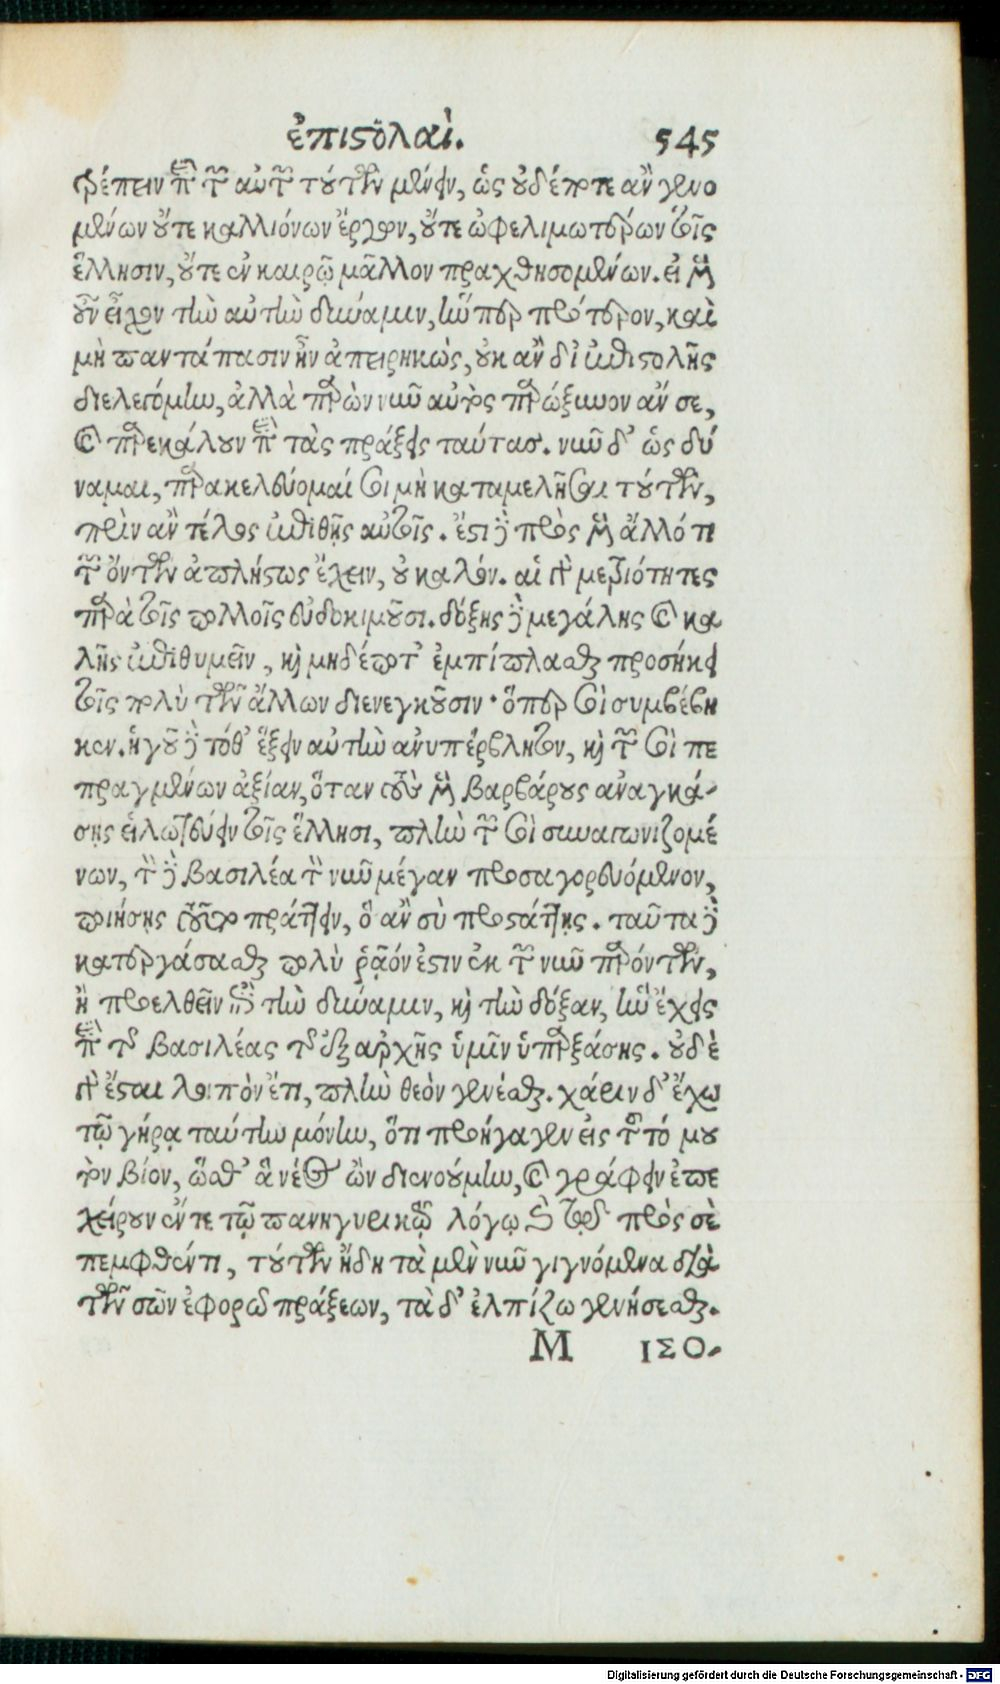 ἐπιστολαὶ. 545
τρέπειν ἐπὶ τὴν αὐτὴν τούτων μένειν, ὡς οὐδέποτε ἂν γενο
μένων οὔτε καλλιόνων ἔργων, οὔτε ὠφελιμωτέρων τοῖς
ἕλλησιν, οὔτε ἐν καιρῷ μᾶλλον πραχθησομένων. εἰ μὲν
οὖν εἶχον τὴν αὐτὴν δύναμιν, ἥνπερ πρότερον, καὶ
μὴ παντάπασιν ἦν ἀπειρηκὼς, οὐκ ἂν δι' ἐπιστολῆς
διελεγόμην, ἀλλὰ παρὼν νῦν αὐτὸς παρώξυνον ἄν σε,
καὶ παρεκάλουν ἐπὶ τὰς πράξεις ταύτας. νῦν δ' ὡς δύ
ναμαι, παρακελεύομαί σοι μὴ καταμελῆσαι τούτων,
πρὶν ἂν τέλος ἐπιθῇς αὐτοῖς. ἔστι δὲ πρὸς μὲν ἄλλό τι
τῶν ὄντων ἀπλήστως ἔχειν, οὐ καλόν. αἱ γὰρ μετριότητες
παρὰ τοῖς πολλοῖς εὐδοκιμοῦσι. δόξης δὲ μεγάλης καὶ κα
λῆς ἐπιθυμεῖν, καὶ μηδέποτ' ἐμπίπλασθαι προσήκει
τοῖς πολὺ τῶν ἄλλων διενεγκοῦσιν· ὅπερ σοὶ συμβέβη
κεν. ἡγοῦ δὲ τόθ' ἕξειν αὐτὴν ἀνυπέρβλητον, καὶ τῶν σοὶ πε
πραγμένων ἀξίαν, ὅταν τοὺς μὲν βαρβάρους ἀναγκά-
σῃς εἱλωτεύειν τοῖς ἕλλησι, πλὴν τῶν σοὶ συναγωνιζομέ
νων, τὸν δὲ βασιλέα τὸν νῦν μέγαν προσαγορευόμενον,
ποιήσῃς τοῦτο πράττειν, ὃ ἂν σὺ προστάττῃς. ταῦτα δὲ
κατεργάσασθαι πολὺ ῥᾷόν ἐστιν ἐκ τῶν νῦν παρόντων,
ἢ προελθεῖν ἐπὶ τὴν δύναμιν, καὶ τὴν δόξαν, ἣν ἔχεις
ἐκ τῆς βασιλέας τῆς ἐξ ἀρχῆς ὑμῖν ὑπαρξάσης. οὐδὲν
γὰρ ἔσται λοιπὸν ἔτι, πλὴν θεὸν γενέσθαι. χάριν δ' ἔχω
τῷ γήρᾳ ταύτην μόνην, ὅτι προήγαγεν εἰς τοῦτό μου
τὸν βίον, ὥσθ' ἃ νέος ὢν διενοούμην, καὶ γράφειν ἐπε
χείρουν ἔν τε τῷ πανηγυρικῷ λόγῳ καὶ τῷδε πρὸς σὲ
πεμφθέντι, τούτων ἤδη τὰ μὲν νῦν γιγνόμενα διὰ
τῶν σῶν ἐφορῶ πράξεων, τὰ δ' ἐλπίζω γενήσεσθαι.
M ΙΣΟ-
Digitalisierung gefördert durch die Deutsche Forschungsgemeinschaft - DFG